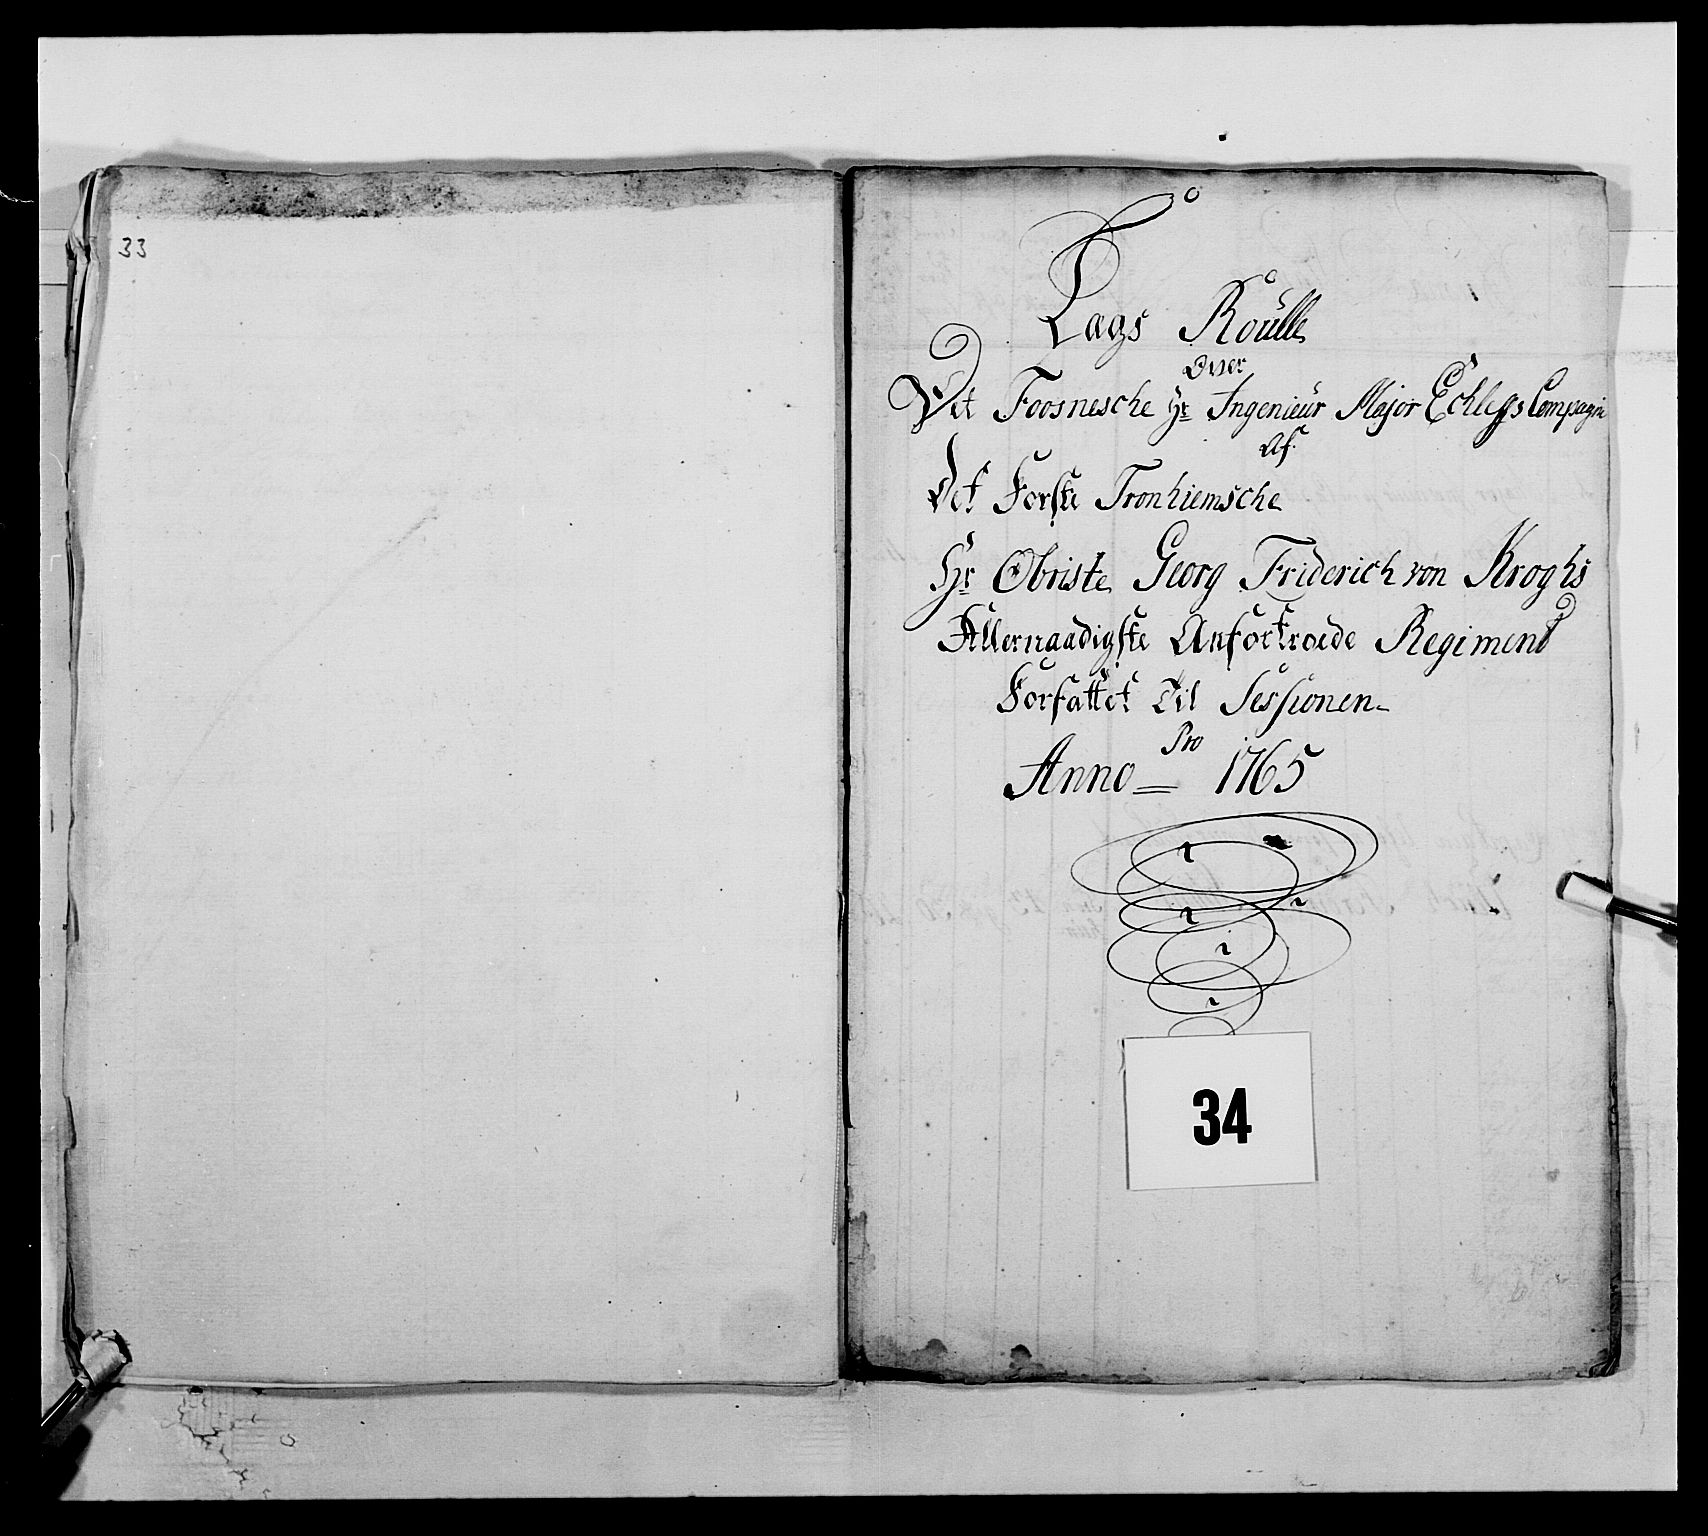 33
Lags Roulle
Over
Det Foosnesche Hr Ingenieur Major Echleffs Compagnie
Af
Det Forste Tronhiemsche
Hr Obriste Georg Friderich von Kroghs
Allernaadigste Anfortroede Regiment
Forfattet Til Sessionen
Pro
Anno 1765
34